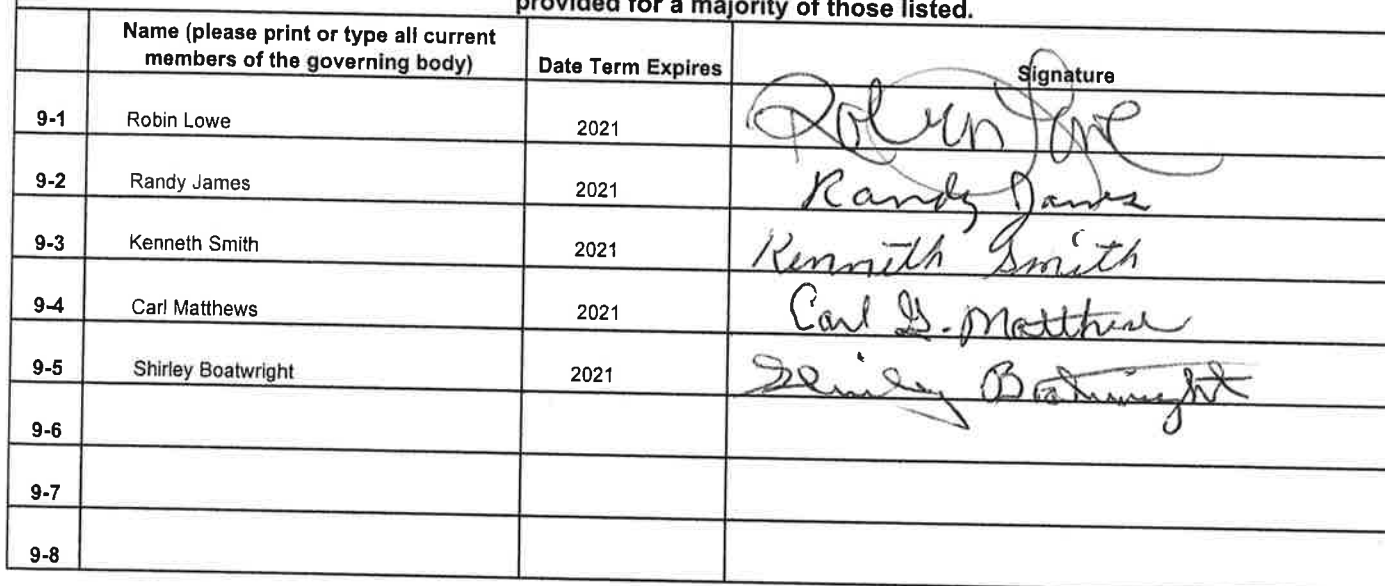 provided for a majority of those listed.
Name (please print or type all current
members of the governing body)
Date Term Expires
Signature
9-1 Robin Lowe 2021 Robin Lowe
9-2 Randy James 2021 Randy James
9-3 Kenneth Smith 2021 Kenneth Smith
9-4 Carl Matthews 2021 Carl G. Matthews
9-5 Shirley Boatwright 2021 Shirley Boatwright
9-6
9-7
9-8